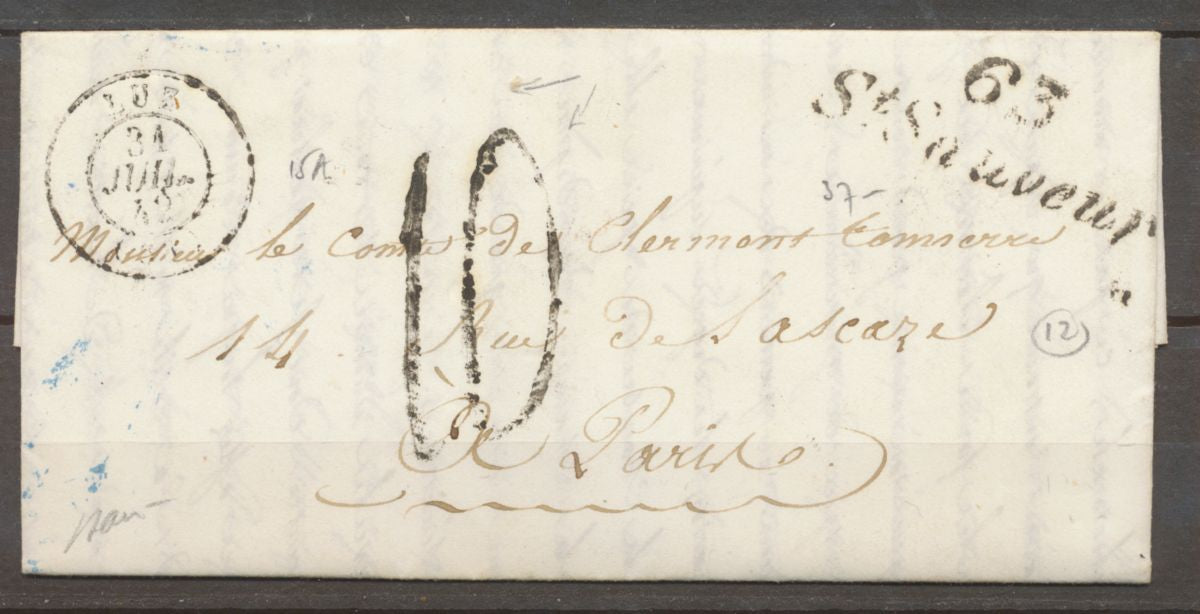 LUZ
31
JUIL.
42
63
St Sauveur.
10
15A
37-
Monsieur le Comte de Clermont tonnerre
14. Rue de Lascaze
12
À Paris.